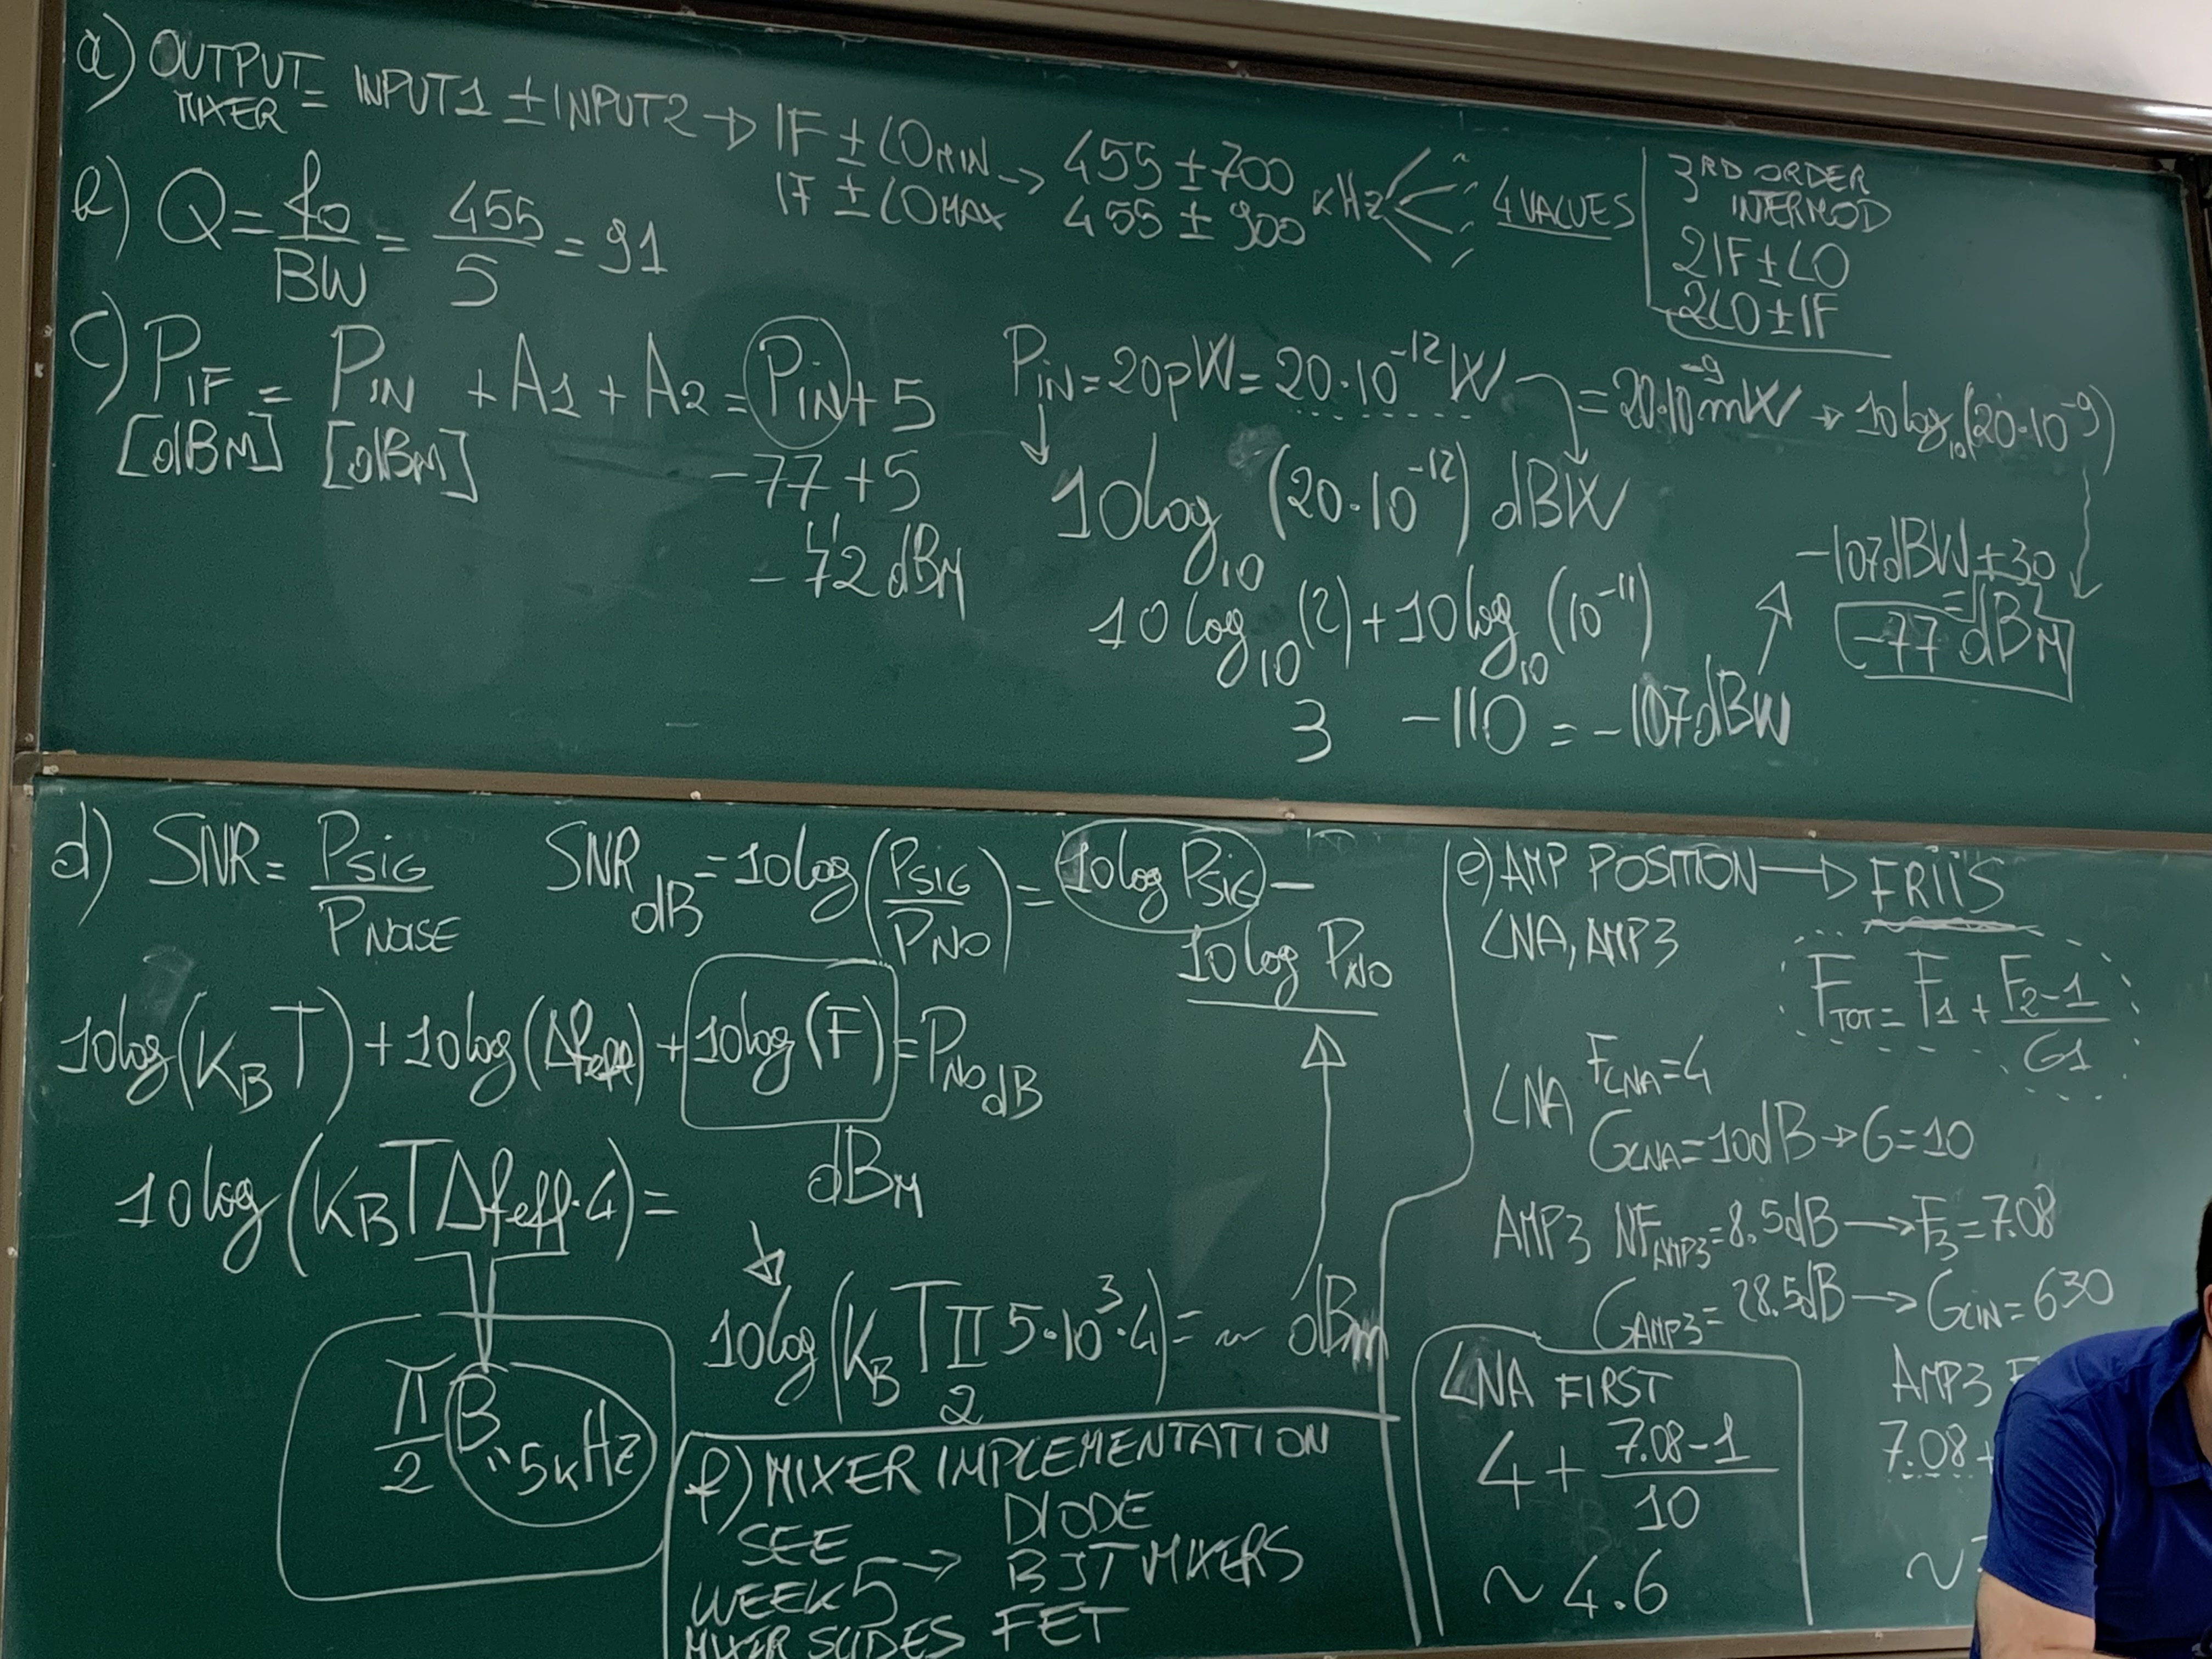 a) OUTPUT MIXER = INPUT1 ± INPUT2 → IF ± LO MIN → 455 ± 700
IF ± LO MAX 455 ± 900 kHz 4 VALUES
3RD ORDER
INTERMOD
2IF ± LO
2LO ± IF
b) Q = f0/BW = 455/5 = 91
c) PIF [dBM] = PIN [dBM] + A1 + A2 = PIN + 5
-77 + 5
"
-72 dBM
PIN = 20pW = 20·10^-12 W = 20·10^-9 mW → 10log10(20·10^-9)
10log10 (20·10^-12) dBW
10log10(2) + 10log10(10^-11)
3 -110 = -107dBW
-107dBW + 30
= -77 dBM
d) SNR = PSIG/PNOISE SNR dB = 10log(PSIG/PNO) = 10log PSIG −
10log PNO
10log(KBT) + 10log(Δfeff) + 10log(F) = PNO dB
dBM
10log(KBTΔfeff·4) =
π/2 B "5kHz
10log(KBT π/2 5·10^3·4) = ~ dBm
e) AMP POSITION → FRIIS
LNA, AMP3
FTOT = F1 + (F2-1)/G1
LNA FLNA=4
GLNA=10dB → G=10
AMP3 NFAMP3=8.5dB → F3=7.08
GAMP3=28.5dB → GLIN=630
LNA FIRST
4 + (7.08-1)/10
~4.6
AMP3 F
7.08+
~
f) MIXER IMPLEMENTATION
SEE
WEEK 5 →
MIXER SLIDES
DIODE
BJT MIXERS
FET